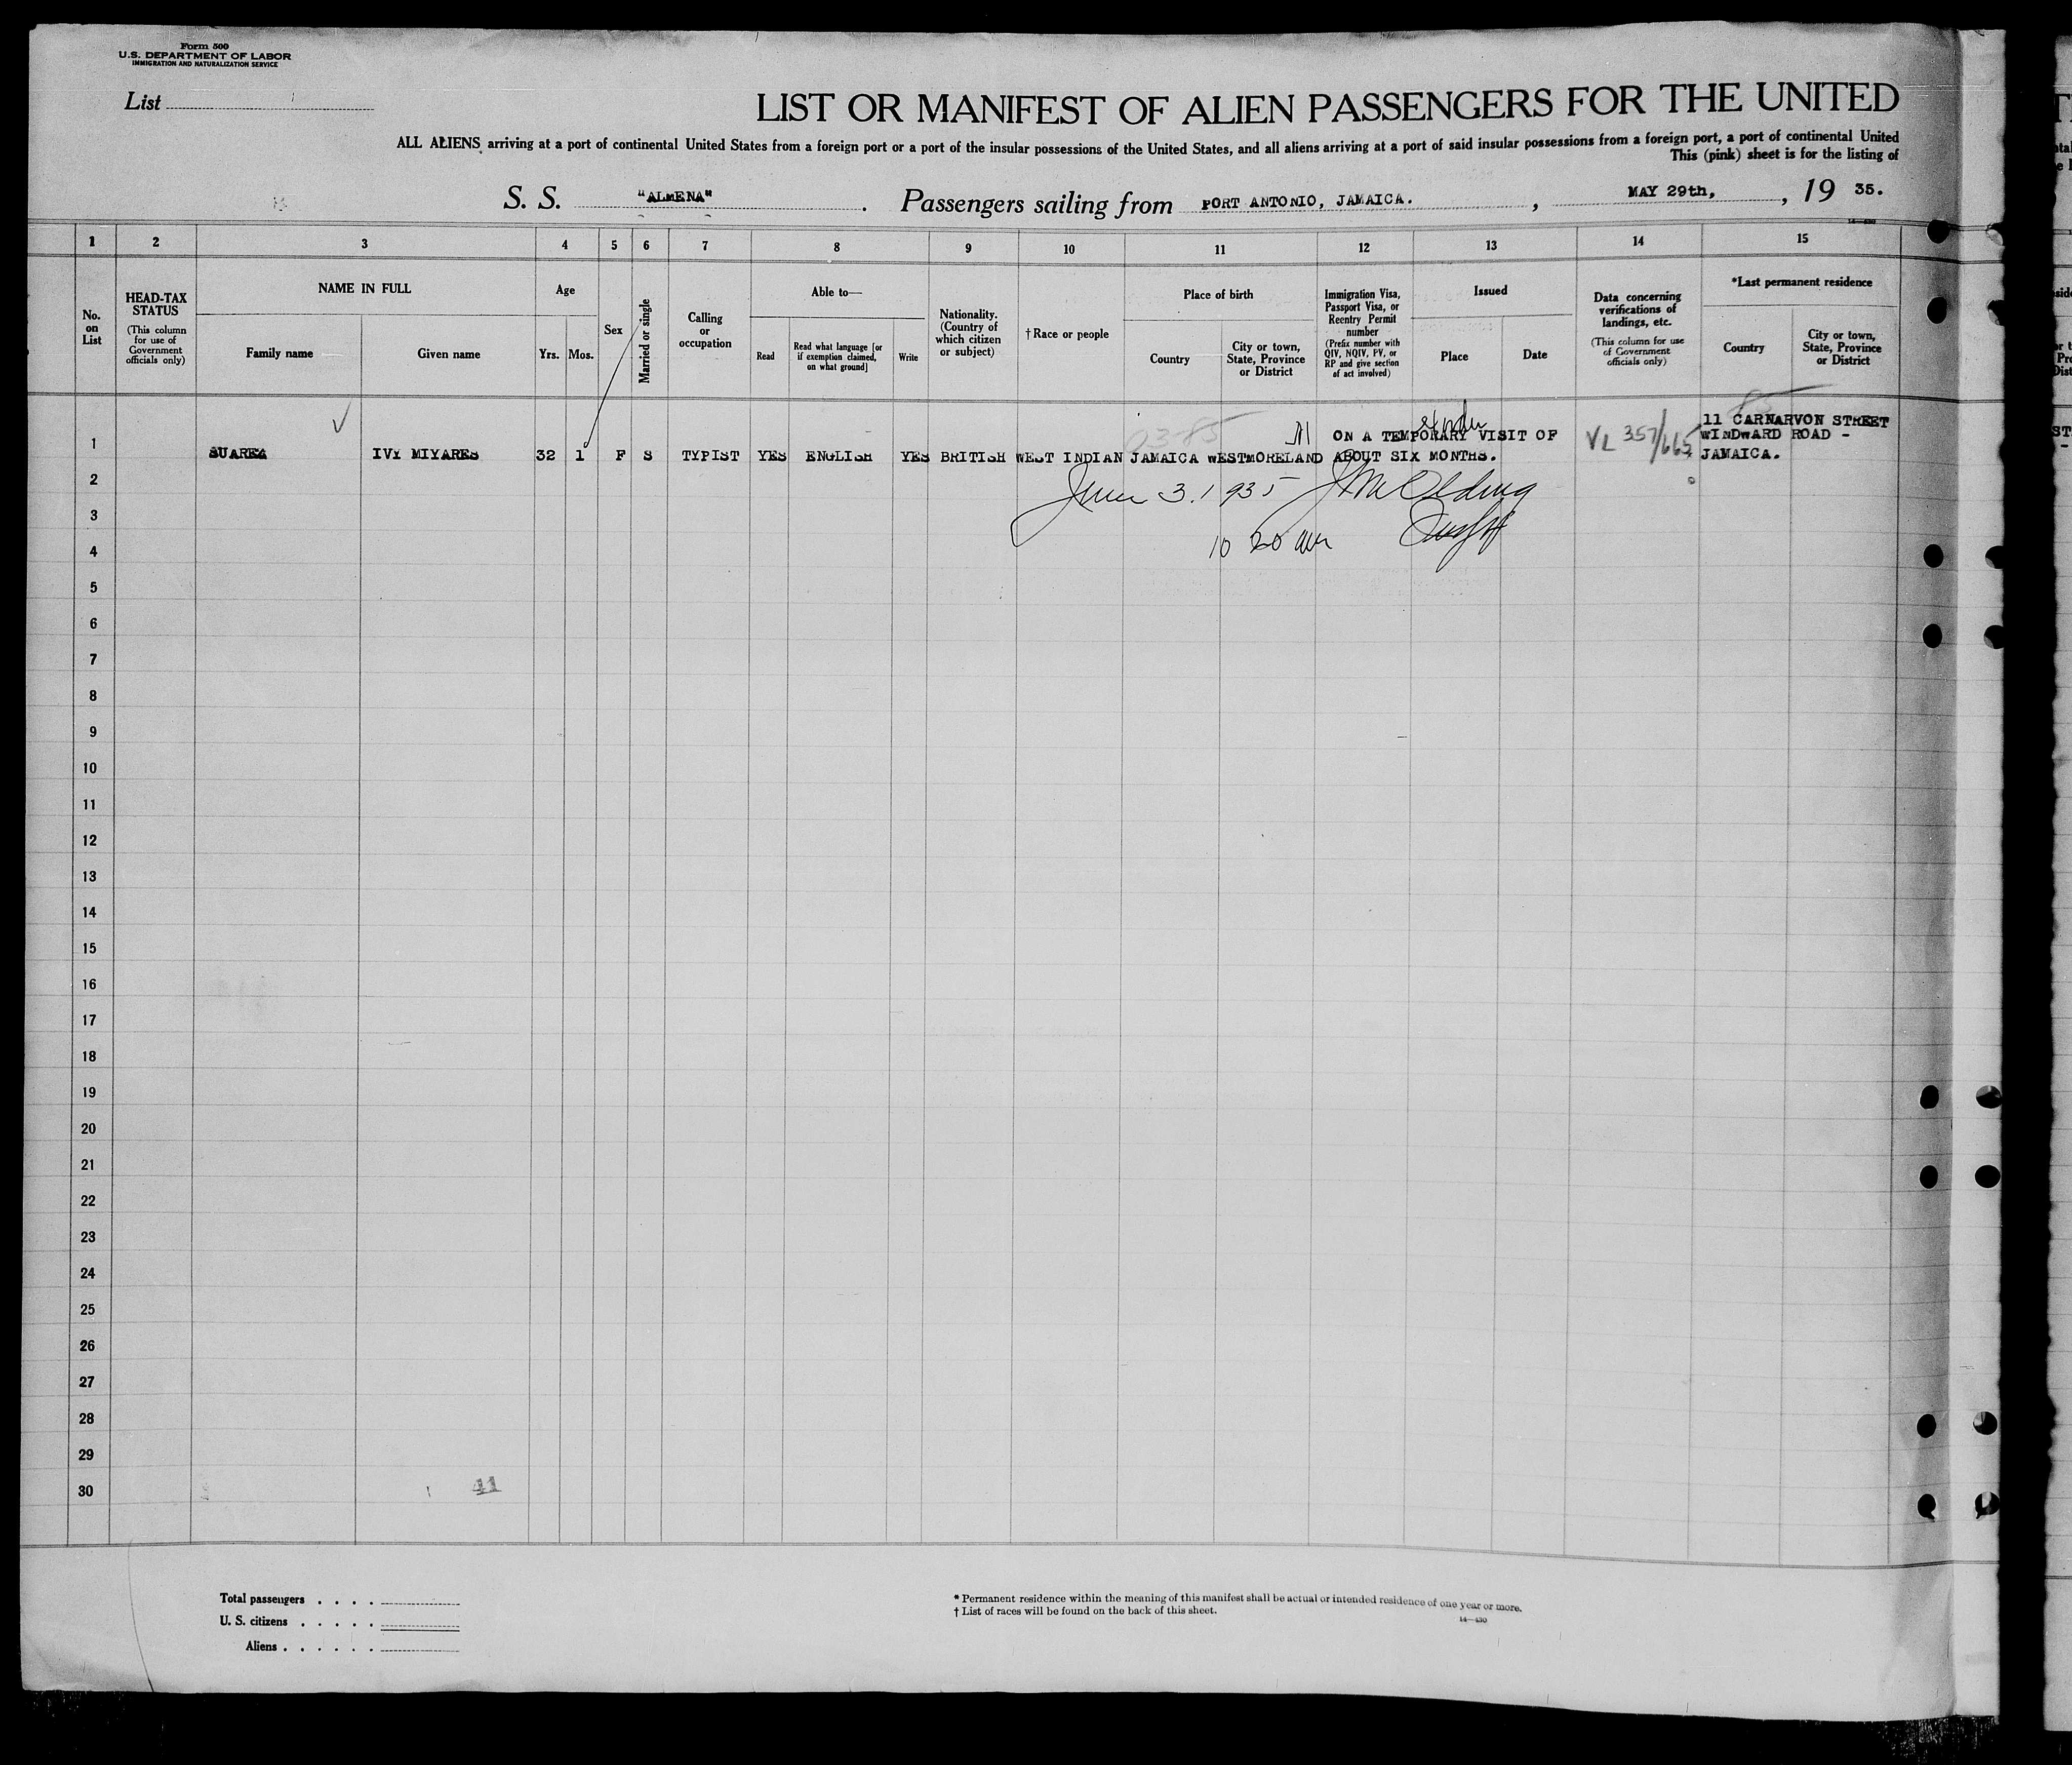 Form 500
U.S. DEPARTMENT OF LABOR
IMMIGRATION AND NATURALIZATION SERVICE
List
LIST OR MANIFEST OF ALIEN PASSENGERS FOR THE UNITED
ALL ALIENS arriving at a port of continental United States from a foreign port or a port of the insular possessions of the United States, and all aliens arriving at a port of said insular possessions from a foreign port, a port of continental United
This (pink) sheet is for the listing of
S. S. "ALMENA". Passengers sailing from PORT ANTONIO, JAMAICA. , MAY 29th, , 19 35.
1 2 3 4 5 6 7 8 9 10 11 12 13 14 15
No. on List
HEAD-TAX STATUS
(This column for use of Government officials only)
NAME IN FULL
Family name
Given name
Age
Yrs. Mos.
Sex
Married or single
Calling or occupation
Able to—
Read
Read what language [or if exemption claimed, on what ground]
Write
Nationality. (Country of which citizen or subject)
† Race or people
Place of birth
Country
City or town, State, Province or District
Immigration Visa, Passport Visa, or Reentry Permit number
(Prefix number with QIV, NQIV, PV, or RP and give section of act involved)
Issued
Place
Date
Data concerning verifications of landings, etc.
(This column for use of Government officials only)
*Last permanent residence
Country
City or town, State, Province or District
03-85
85
11 CARNARVON STREET
ON A TEMPORARY VISIT OF
VL 357/665
WINDWARD ROAD -
1 SUAREZ IVY MIYARES 32 1 F S TYPIST YES ENGLISH YES BRITISH WEST INDIAN JAMAICA WESTMORELAND ABOUT SIX MONTHS.
JAMAICA.
2
June 3. 1935
3
4
10 20 am
5
6
7
8
9
10
11
12
13
14
15
16
17
18
19
20
21
22
23
24
25
26
27
28
29
30
41
Total passengers . . . .
U. S. citizens . . . . .
Aliens . . . . . .
* Permanent residence within the meaning of this manifest shall be actual or intended residence of one year or more.
† List of races will be found on the back of this sheet.
14—430